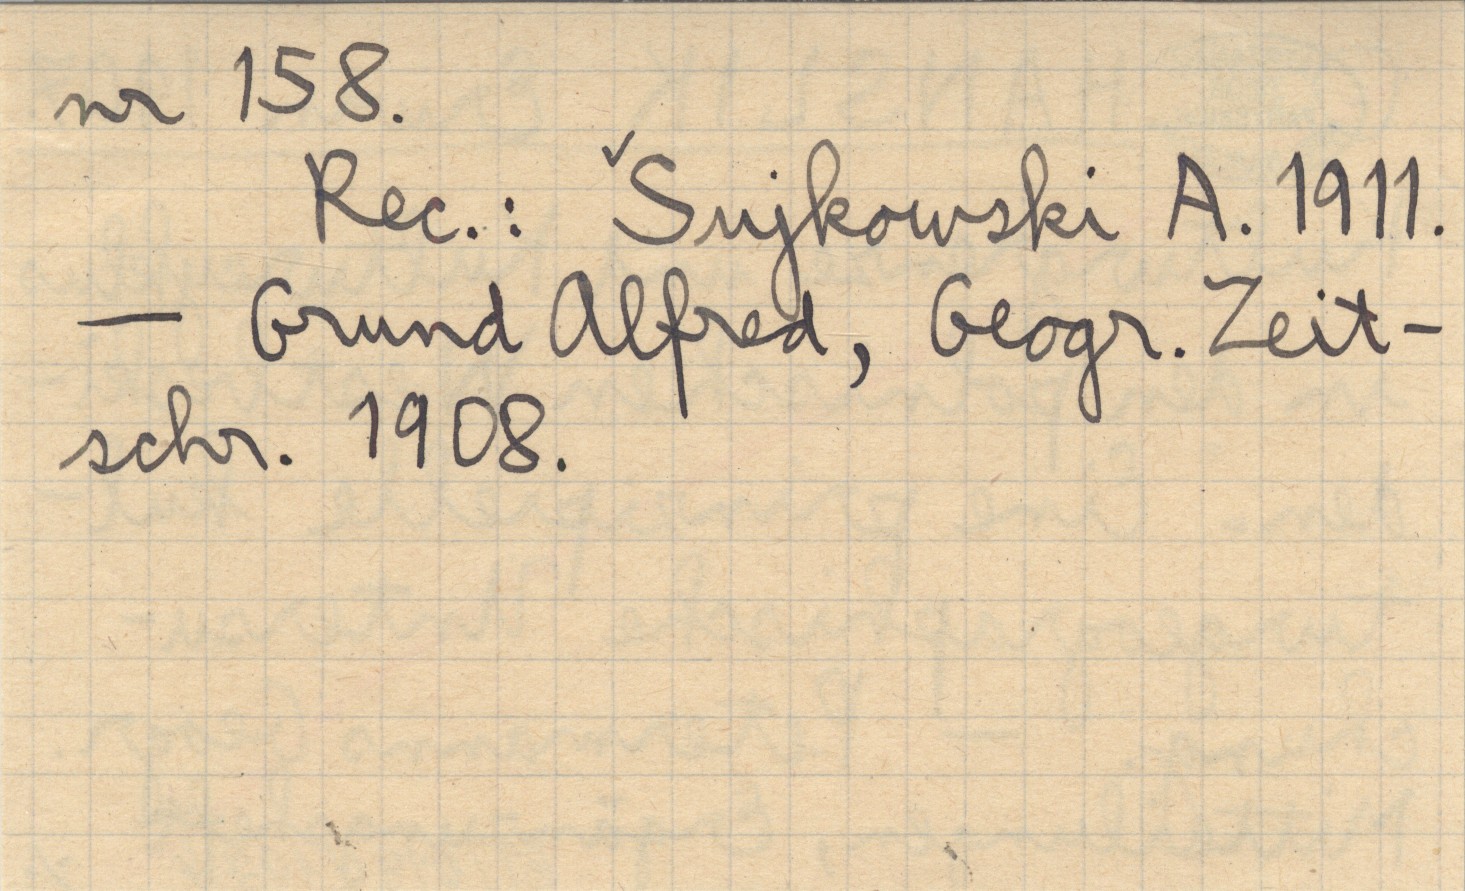 nr 158.
Rec.: Sujkowski A. 1911.
— Grund Alfred, Geogr. Zeit-
schr. 1908.